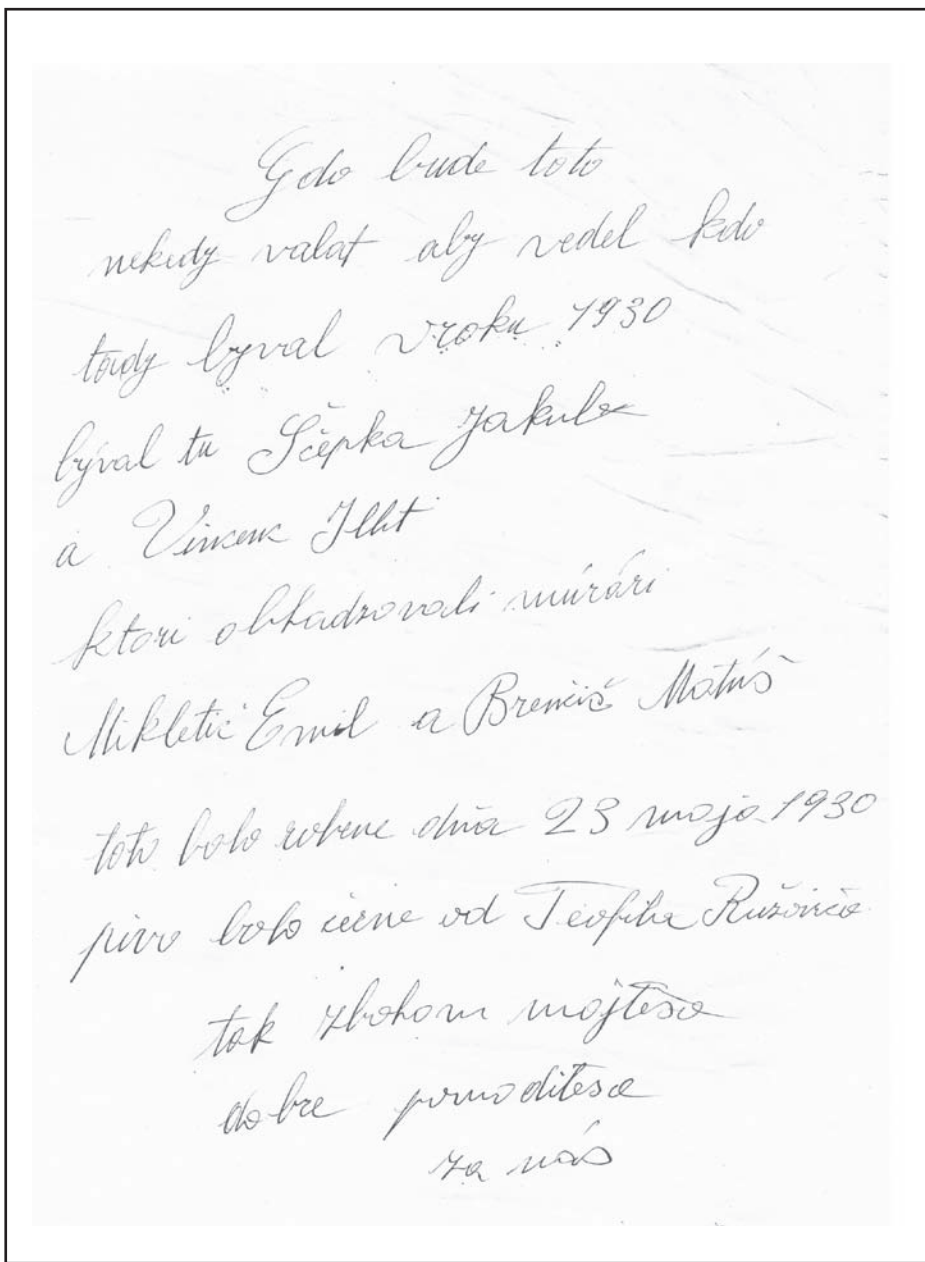 Gdo bude toto
nekedy valat aby vedel kdo
tady byval vroku 1930
býval tu Sčepka Jakub
a Vincenc Illit
ktori obkadzovali múrári
Mikletič Emil a Brenčič Matúš
toto bolo robene dňa 23 maja 1930
pivo bolo čérne od Teofila Ružoviča
tak zbohom majtesa
dobre pomoditesa
za nás